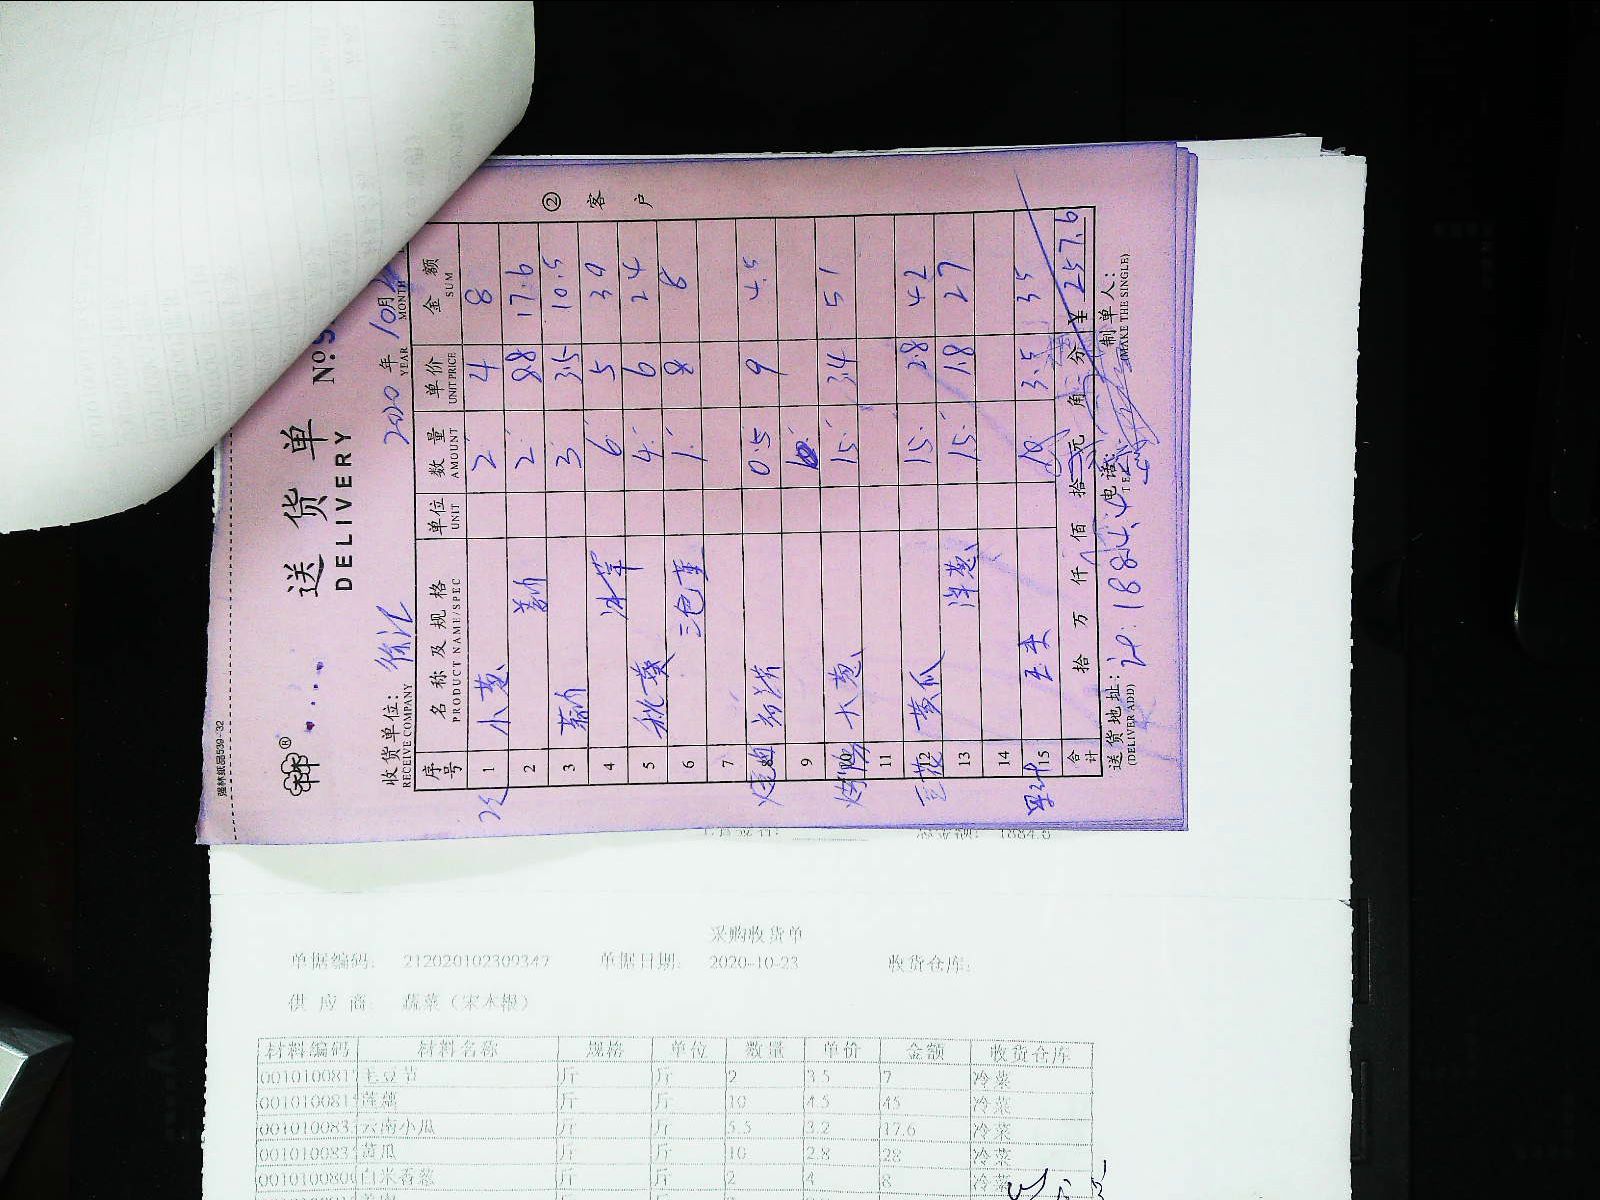 强林纸品539-32
送货单 No. 9
DELIVERY
收货单位: 徐汇 2020 年 10 月
RECEIVE COMPANY YEAR MONTH
序号 名称及规格 单位 数量 单价 金额
PRODUCT NAME/SPEC UNIT AMOUNT UNIT PRICE SUM
1 小葱 2 4 8
2 2 8.8 17.6
3 3 3.5 10.5
4 6 5 30
5 秋葵 4 6 24
6 三色堇 1 8 8
7
8 0.5 9 4.5
9
10 大葱 15 3.4 51
11
12 黄瓜 15 2.8 42
13 洋葱 15 1.8 27
14
15 玉米 10 3.5 35
合计 拾 万 仟 佰 拾 元 角 分 ¥ 257.6
送货地址: 1884.4 电话: 制单人:
(DELIVER ADD) TEL (MAKE THE SINGLE)
② 客户
总金额: 1884.6
采购收货单
单据编码: 212020102300347 单据日期: 2020-10-23 收货仓库:
供应商: 蔬菜（宋本根）
材料编码 材料名称 规格 单位 数量 单价 金额 收货仓库
001010081 毛豆节 斤 斤 2 3.5 7 冷菜
001010081 莲藕 斤 斤 10 4.5 45 冷菜
001010083 云南小瓜 斤 斤 5.5 3.2 17.6 冷菜
001010083 黄瓜 斤 斤 10 2.8 28 冷菜
001010080 白米香葱 斤 斤 2 4 8 冷菜